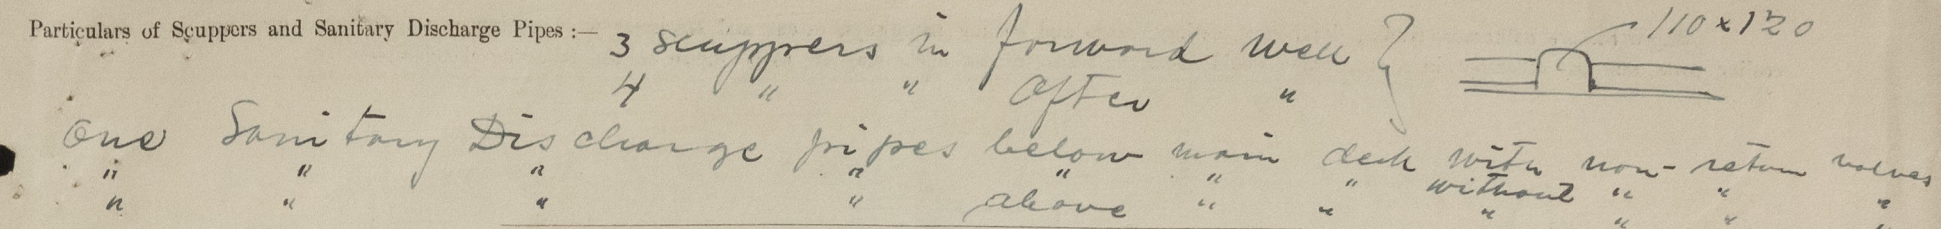 Particulars of Scuppers and Sanitary Discharge Pipes :— 3 scuppers in forward well } 110 x 120
4 " " After "
One Sanitary Discharge pipes below main deck with non-return valves
" " " " " " " without " " "
" " " " above " " " " " "